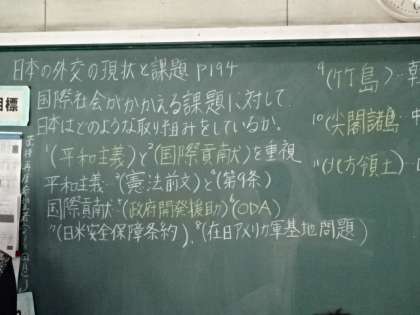 日本の外交の現状と課題 P194
目標
国際社会がかかえる課題に対して、
日本はどのような取り組みをしているか。
1(平和主義)と2(国際貢献)を重視
平和主義…3(憲法前文)と4(第9条)
国際貢献…5(政府開発援助)6(ODA)
7(日米安全保障条約)、8(在日アメリカ軍基地問題)
9(竹島)…
10(尖閣諸島…
11(北方領土)…